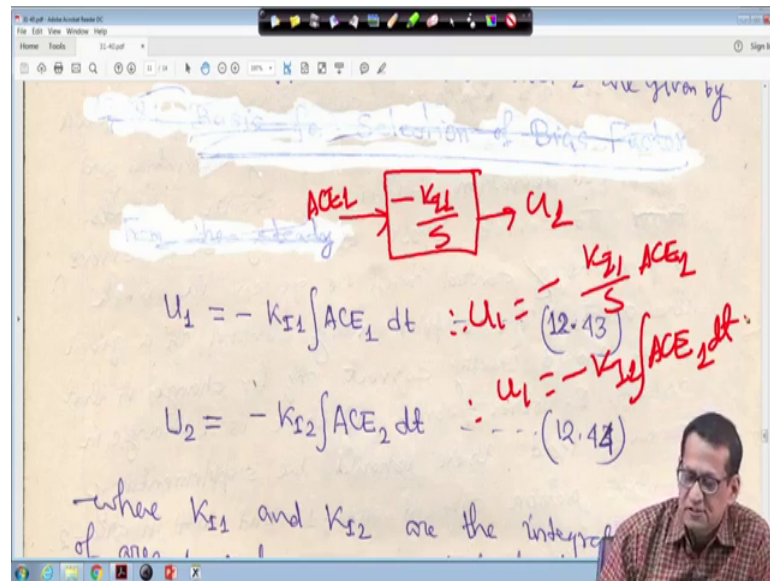 31-40.pdf - Adobe Acrobat Reader DC
File Edit View Window Help
Home Tools 31-40.pdf × Sign In
are given by
Basis for Selection of Bias Factor
ACE1 → -K_I1/S → U_1
From the steady
U_1 = - K_I1 ∫ ACE_1 dt ∴ U_1 = - K_I1/S ACE_1
(12.43)
∴ U_1 = - K_I1 ∫ ACE_1 dt.
U_2 = - K_I2 ∫ ACE_2 dt ---- (12.44)
-where K_I1 and K_I2 are the integral
of area